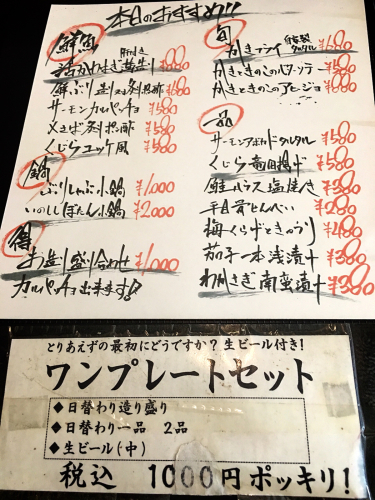 本日のおすすめ!!
鮮魚
肝付き
活かわはぎ造り
鮮ぶり造り又は刺ポン酢 ¥680
サーモンカルパッチョ ¥580
〆さば刺ポン酢 ¥580
くじらユッケ風 ¥580
鍋
ぶりしゃぶ小鍋 ¥1000
いのししぼたん小鍋 ¥2000
得
お造り盛り合わせ ¥1000
カルパッチョ出来ます!!
旬
かきフライ 自家製タルタル ¥680
かきときのこのバターソテー
かきときのこのアヒージョ
一品
サーモンアボカドタルタル
くじら竜田揚げ
鮭ハラス塩焼き
平目昔とんぺい
梅くらげときゅうり
茄子一本浅漬け ¥300
わかさぎ南蛮漬け ¥380
とりあえずの最初にどうですか？生ビール付き！
ワンプレートセット
◆日替わり造り盛り
◆日替わり一品 2品
◆生ビール(中)
税込 1000円ポッキリ！